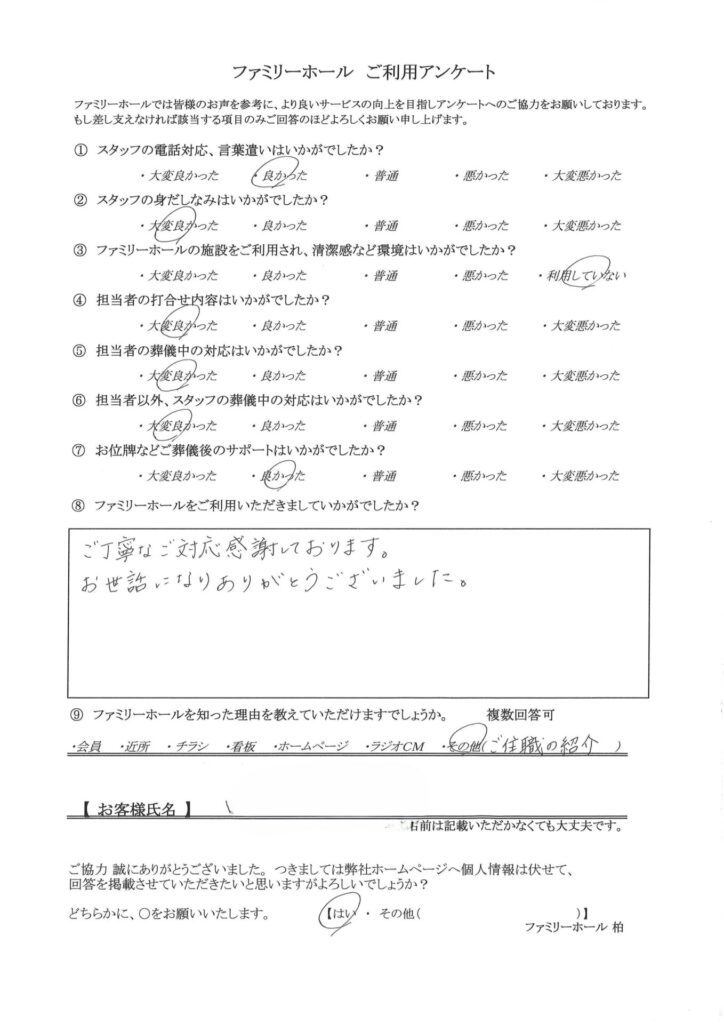 ファミリーホール ご利用アンケート
ファミリーホールでは皆様のお声を参考に、より良いサービスの向上を目指しアンケートへのご協力をお願いしております。
もし差し支えなければ該当する項目のみご回答のほどよろしくお願い申し上げます。
① スタッフの電話対応、言葉遣いはいかがでしたか？
・大変良かった ・良かった ・普通 ・悪かった ・大変悪かった
② スタッフの身だしなみはいかがでしたか？
・大変良かった ・良かった ・普通 ・悪かった ・大変悪かった
③ ファミリーホールの施設をご利用され、清潔感など環境はいかがでしたか？
・大変良かった ・良かった ・普通 ・悪かった ・利用していない
④ 担当者の打合せ内容はいかがでしたか？
・大変良かった ・良かった ・普通 ・悪かった ・大変悪かった
⑤ 担当者の葬儀中の対応はいかがでしたか？
・大変良かった ・良かった ・普通 ・悪かった ・大変悪かった
⑥ 担当者以外、スタッフの葬儀中の対応はいかがでしたか？
・大変良かった ・良かった ・普通 ・悪かった ・大変悪かった
⑦ お位牌などご葬儀後のサポートはいかがでしたか？
・大変良かった ・良かった ・普通 ・悪かった ・大変悪かった
⑧ ファミリーホールをご利用いただきましていかがでしたか？
ご丁寧なご対応感謝しております。
お世話になりありがとうございました。
⑨ ファミリーホールを知った理由を教えていただけますでしょうか。 複数回答可
・会員 ・近所 ・チラシ ・看板 ・ホームページ ・ラジオCM ・その他(ご住職の紹介 )
【 お客様氏名 】
名前は記載いただかなくても大丈夫です。
ご協力 誠にありがとうございました。つきましては弊社ホームページへ個人情報は伏せて、
回答を掲載させていただきたいと思いますがよろしいでしょうか？
どちらかに、〇をお願いいたします。 【はい ・ その他( )】
ファミリーホール 柏